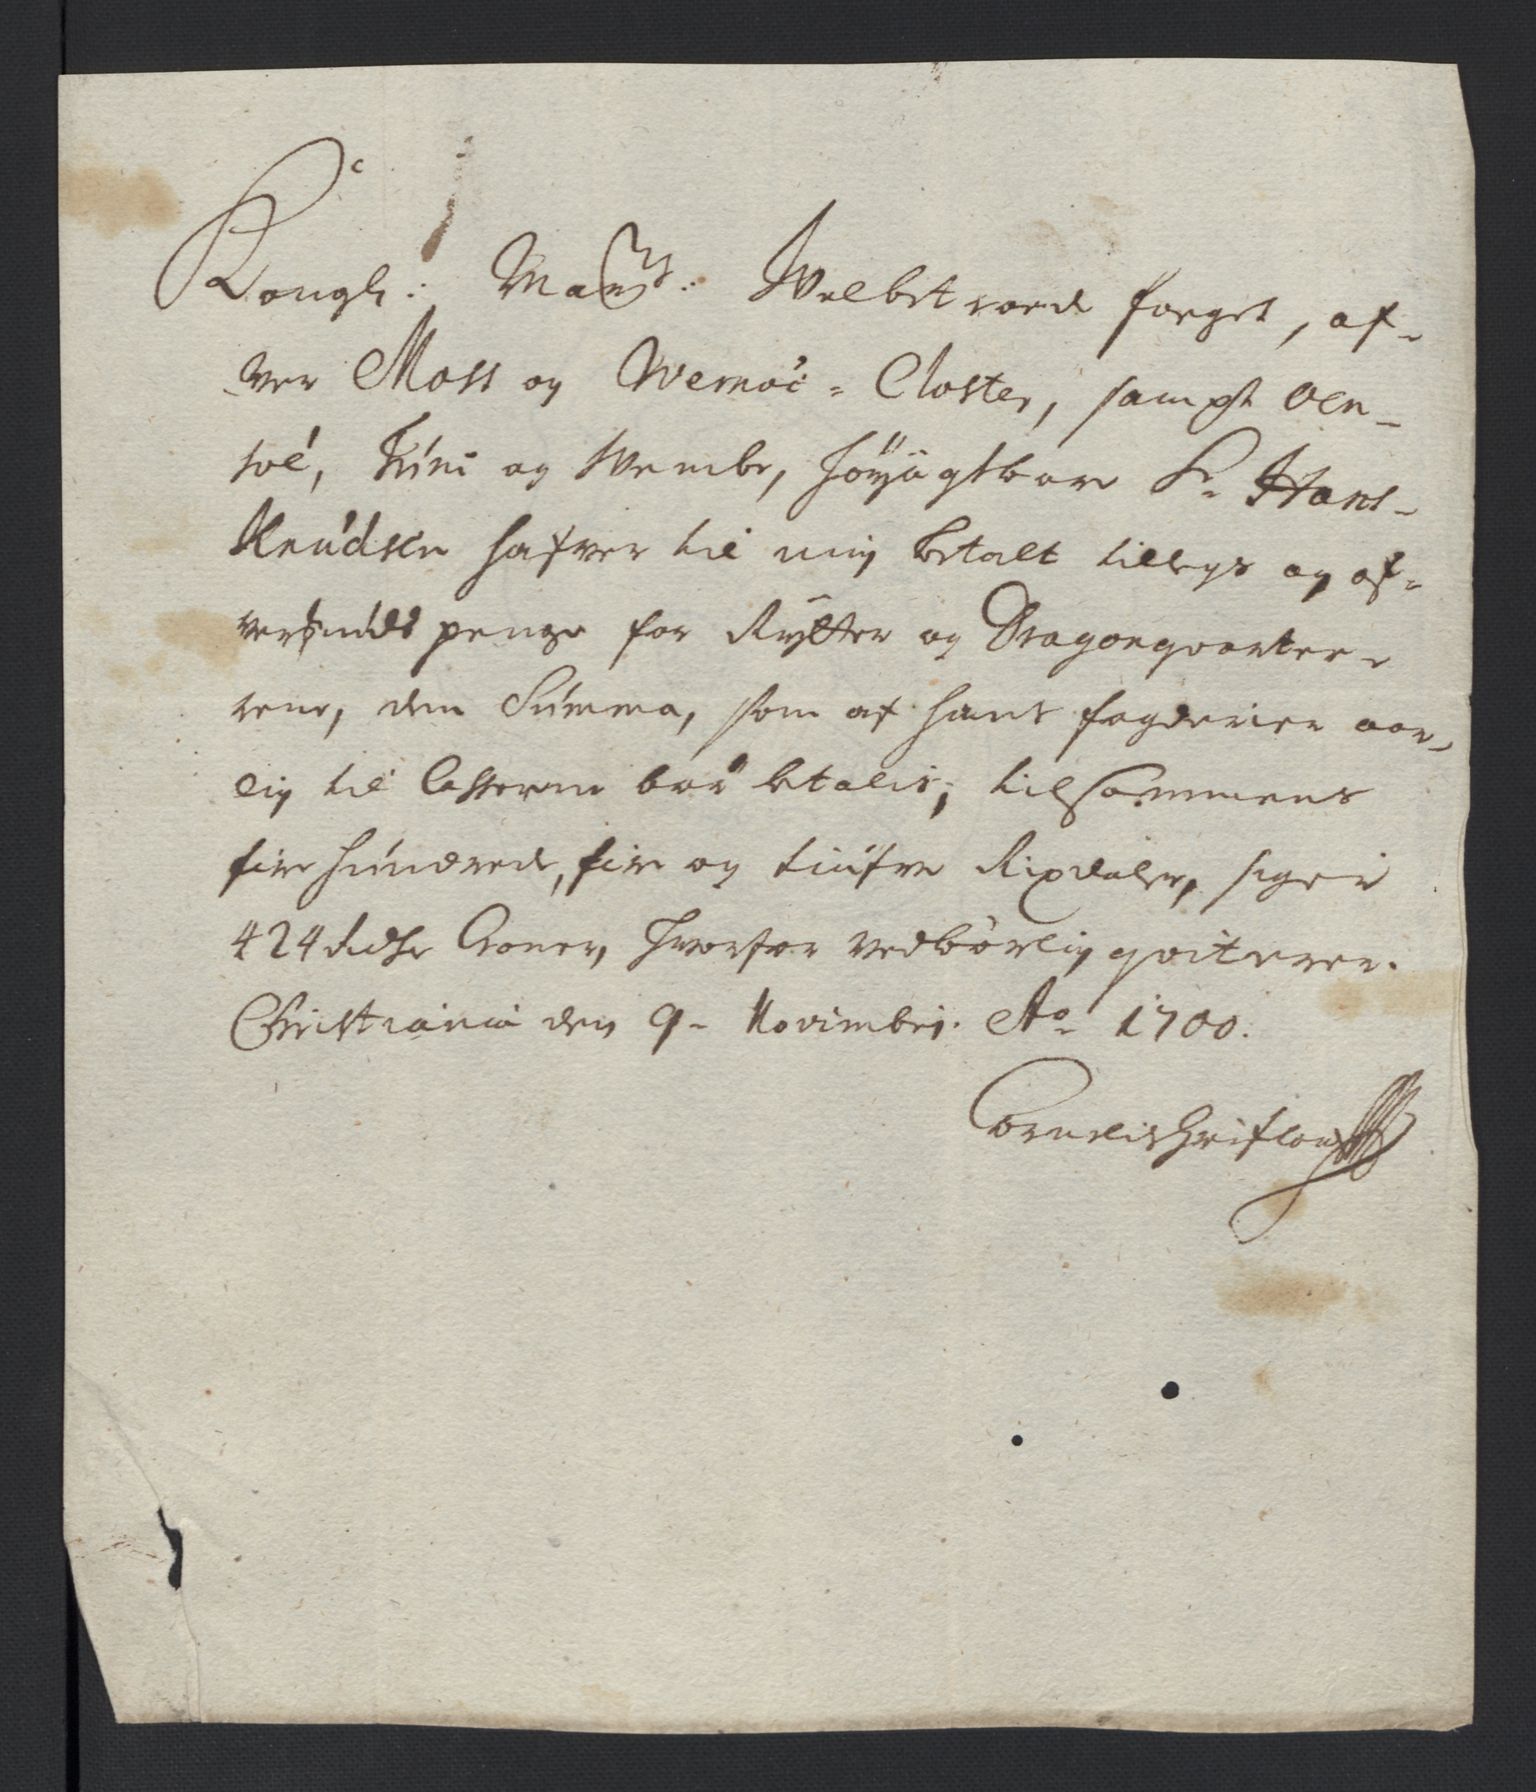 Kongl: May:ts Welbetroede foeget, of-
ver Moss og Wernöe-Closter, sampt Oen-
söe, Tüne og Wembe, höyagtbare Sr. Hans-
Knudsen hafver til mig betalt tillegs og of-
verskuds penge for Rytter og Dragonqvarter-
rene, den Summa, som af hans fogderier aar-
lig til Casserne bör betalis, tilsammens
fire hundrede, fire og tiufve Rixdaler, siger
424 Rdlr Croner, hvorfor vedbörlig qviterer.
Christiania den 9. Novembrj. Ao 1700.
Cornelis